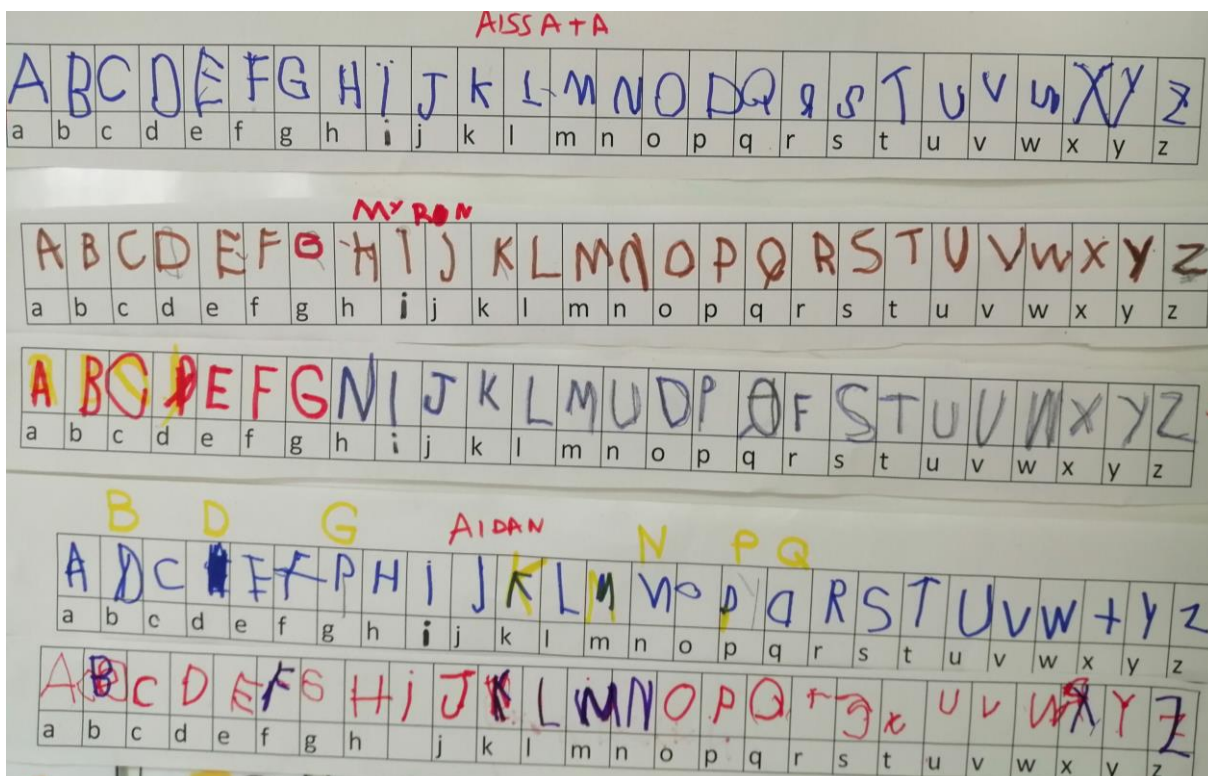 AISSATA
A B C D E F G H i J K L M N O D Q R S T U V W X Y Z
a b c d e f g h i j k l m n o p q r s t u v w x y z
MYRON
A B C D E F G H I J K L M N O P Q R S T U V W X Y Z
a b c d e f g h i j k l m n o p q r s t u v w x y z
A B C D E F G N I J K L M U D P Q F S T U V W X Y Z
a b c d e f g h i j k l m n o p q r s t u v w x y z
B D G AIDAN N P Q
A D C F F P H i J K L M N o p Q R S T U V W + y z
a b c d e f g h i j k l m n o p q r s t u v w x y z
A B C D E F G H i J K L M N O P Q r x U V W X Y Z
a b c d e f g h j k l m n o p q r s t u v w x y z